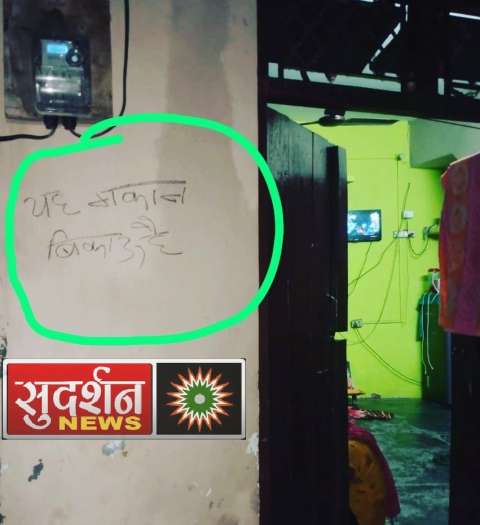 यह मकान
बिकाऊ है
सुदर्शन
NEWS